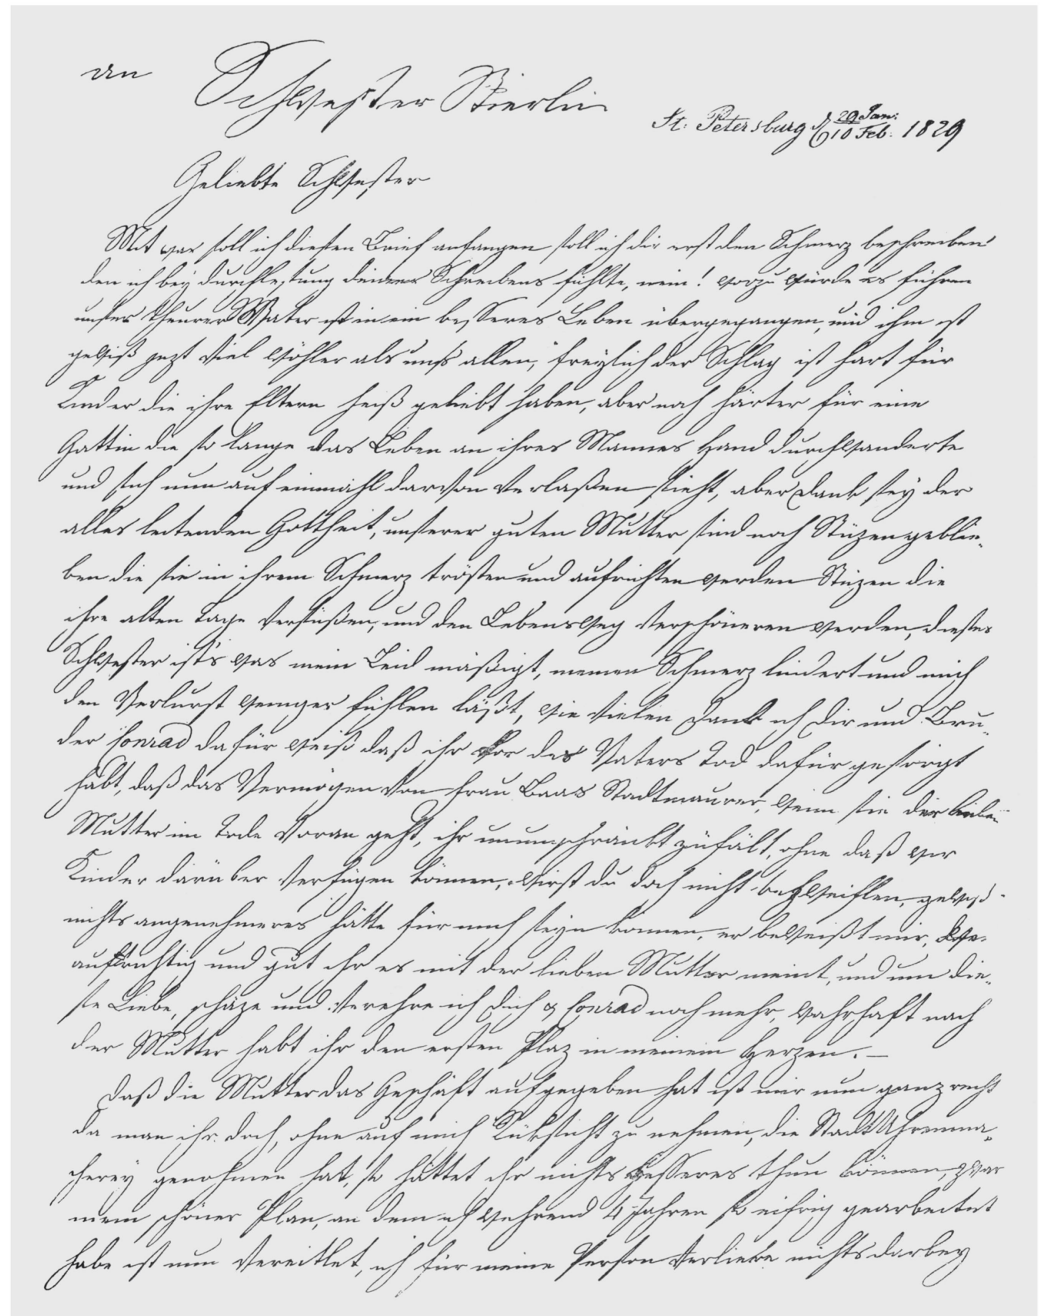 an Schwester Stierlin
St. Petersburg d 29 Jan. / 10 Feb. 1829
Geliebte Schwester
Mit was soll ich diesen Brief anfangen soll ich dir erst den Schmerz beschreiben
den ich bey durchlesung deines Schreibens fühlte, nein! wozu würde es führen
unser theurer Vater ist in ein besseres Leben übergegangen, und ihm ist
gewiß jezt viel wöhler als uns allen, freylich der Schlag ist hart für
Kinder die ihre Eltern heiß geliebt haben, aber noch härter für eine
Gattin die so lange das Leben an ihres Mannes Hand durchwanderte
und sich nun auf einmahl davon verlaßen sieht, aber Dank sey der
alles leitenden Gottheit, unserer guten Mutter sind noch Stüzen geblie-
ben die sie in ihrem Schmerz trösten und aufrichten werden Stüzen die
ihre alten Tage versüßen, und den Lebensweg verschöneren werden, dieses
Schwester ist's was mein Leid mäßigt, meinen Schmerz lindert und mich
den Verlurst weniger fühlen läßt, wie vielen Dank ich Dir und Bru-
der Conrad dafür weiß daß ihr vor des Vaters Tod dafür gesorgt
habt, daß das Vermögen von Frau Baas Stadtmaurer, wenn sie der lieben
Mutter im Tode voran geht, ihr unumschränkt zufält, ohne daß wir
Kinder darüber verfügen können, wirst du doch nicht bezweiflen, gewiß
nichts angenehmeres hätte für mich seyn können, er beweißt mir, wie
aufrichtig und gut ihr es mit der lieben Mutter meint, und um die-
se Liebe, schäze und verehre ich Dich & Conrad noch mehr, wahrhaft nach
der Mutter habt ihr den ersten Plaz in meinem Herzen. —
Daß die Mutter das Geschäft aufgegeben hat ist mir nun ganz recht
da man ihr doch, ohne auf mich Rüksicht zu nehmen, die Stadt Uhrenma-
cherey genohmen hat, so hättet ihr nichts besseres thun können, zwar
mein schöner Plan, an dem ich während 4 Jahren so eifrig gearbeitet
habe ist nun vereitlet, ich für meine Person verliere nichts darbey